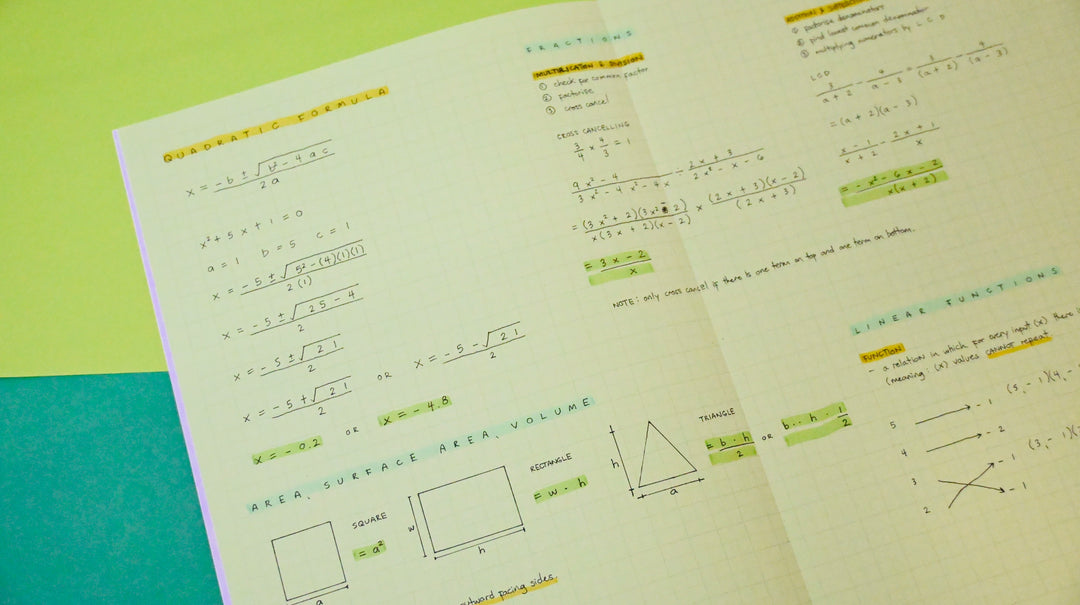 QUADRATIC FORMULA
x = -b ± √b² - 4ac / 2a
x² + 5x + 1 = 0
a = 1 b = 5 c = 1
x = -5 ± √5² - (4)(1)(1) / 2(1)
x = -5 ± √25 - 4 / 2
x = -5 ± √21 / 2
x = -5 + √21 / 2 OR x = -5 - √21 / 2
x = -0.2 OR x = -4.8
AREA, SURFACE AREA, VOLUME
SQUARE
= a²
a
RECTANGLE
= w · h
w
h
TRIANGLE
= b · h / 2 OR b · h · 1 / 2
h
a
outward facing sides.
FRACTIONS
MULTIPLICATION & DIVISION
① check for common factor
② factorise
③ cross cancel
CROSS CANCELLING
3/4 × 4/3 = 1
9x² - 4 / 3x² - 4x² - 4x ÷ 2x + 3 / 2x² - x - 6
= (3x² + 2)(3x² - 2) / x(3x + 2)(x - 2) × (2x + 3)(x - 2) / (2x + 3)
= 3x - 2 / x
NOTE: only cross cancel if there is one term on top and one term on bottom.
ADDITION & SUBTRACTION
① factorise denominators
② find lowest common denominator
③ multiplying numerators by LCD
LCD
3 / a + 2 - 4 / a - 3 = 3 / (a + 2) - 4 / (a - 3)
= (a + 2)(a - 3)
x - 1 / x + 2 - 2x + 1 / x
= -x² - 6x - 2 / x(x + 2)
LINEAR FUNCTIONS
FUNCTION
- a relation in which for every input (x) there
(meaning: (x) values CANNOT repeat
5 → -1 (5, -1)(4, -
4 → -2
3 -1 (3, -1)(
2 -1